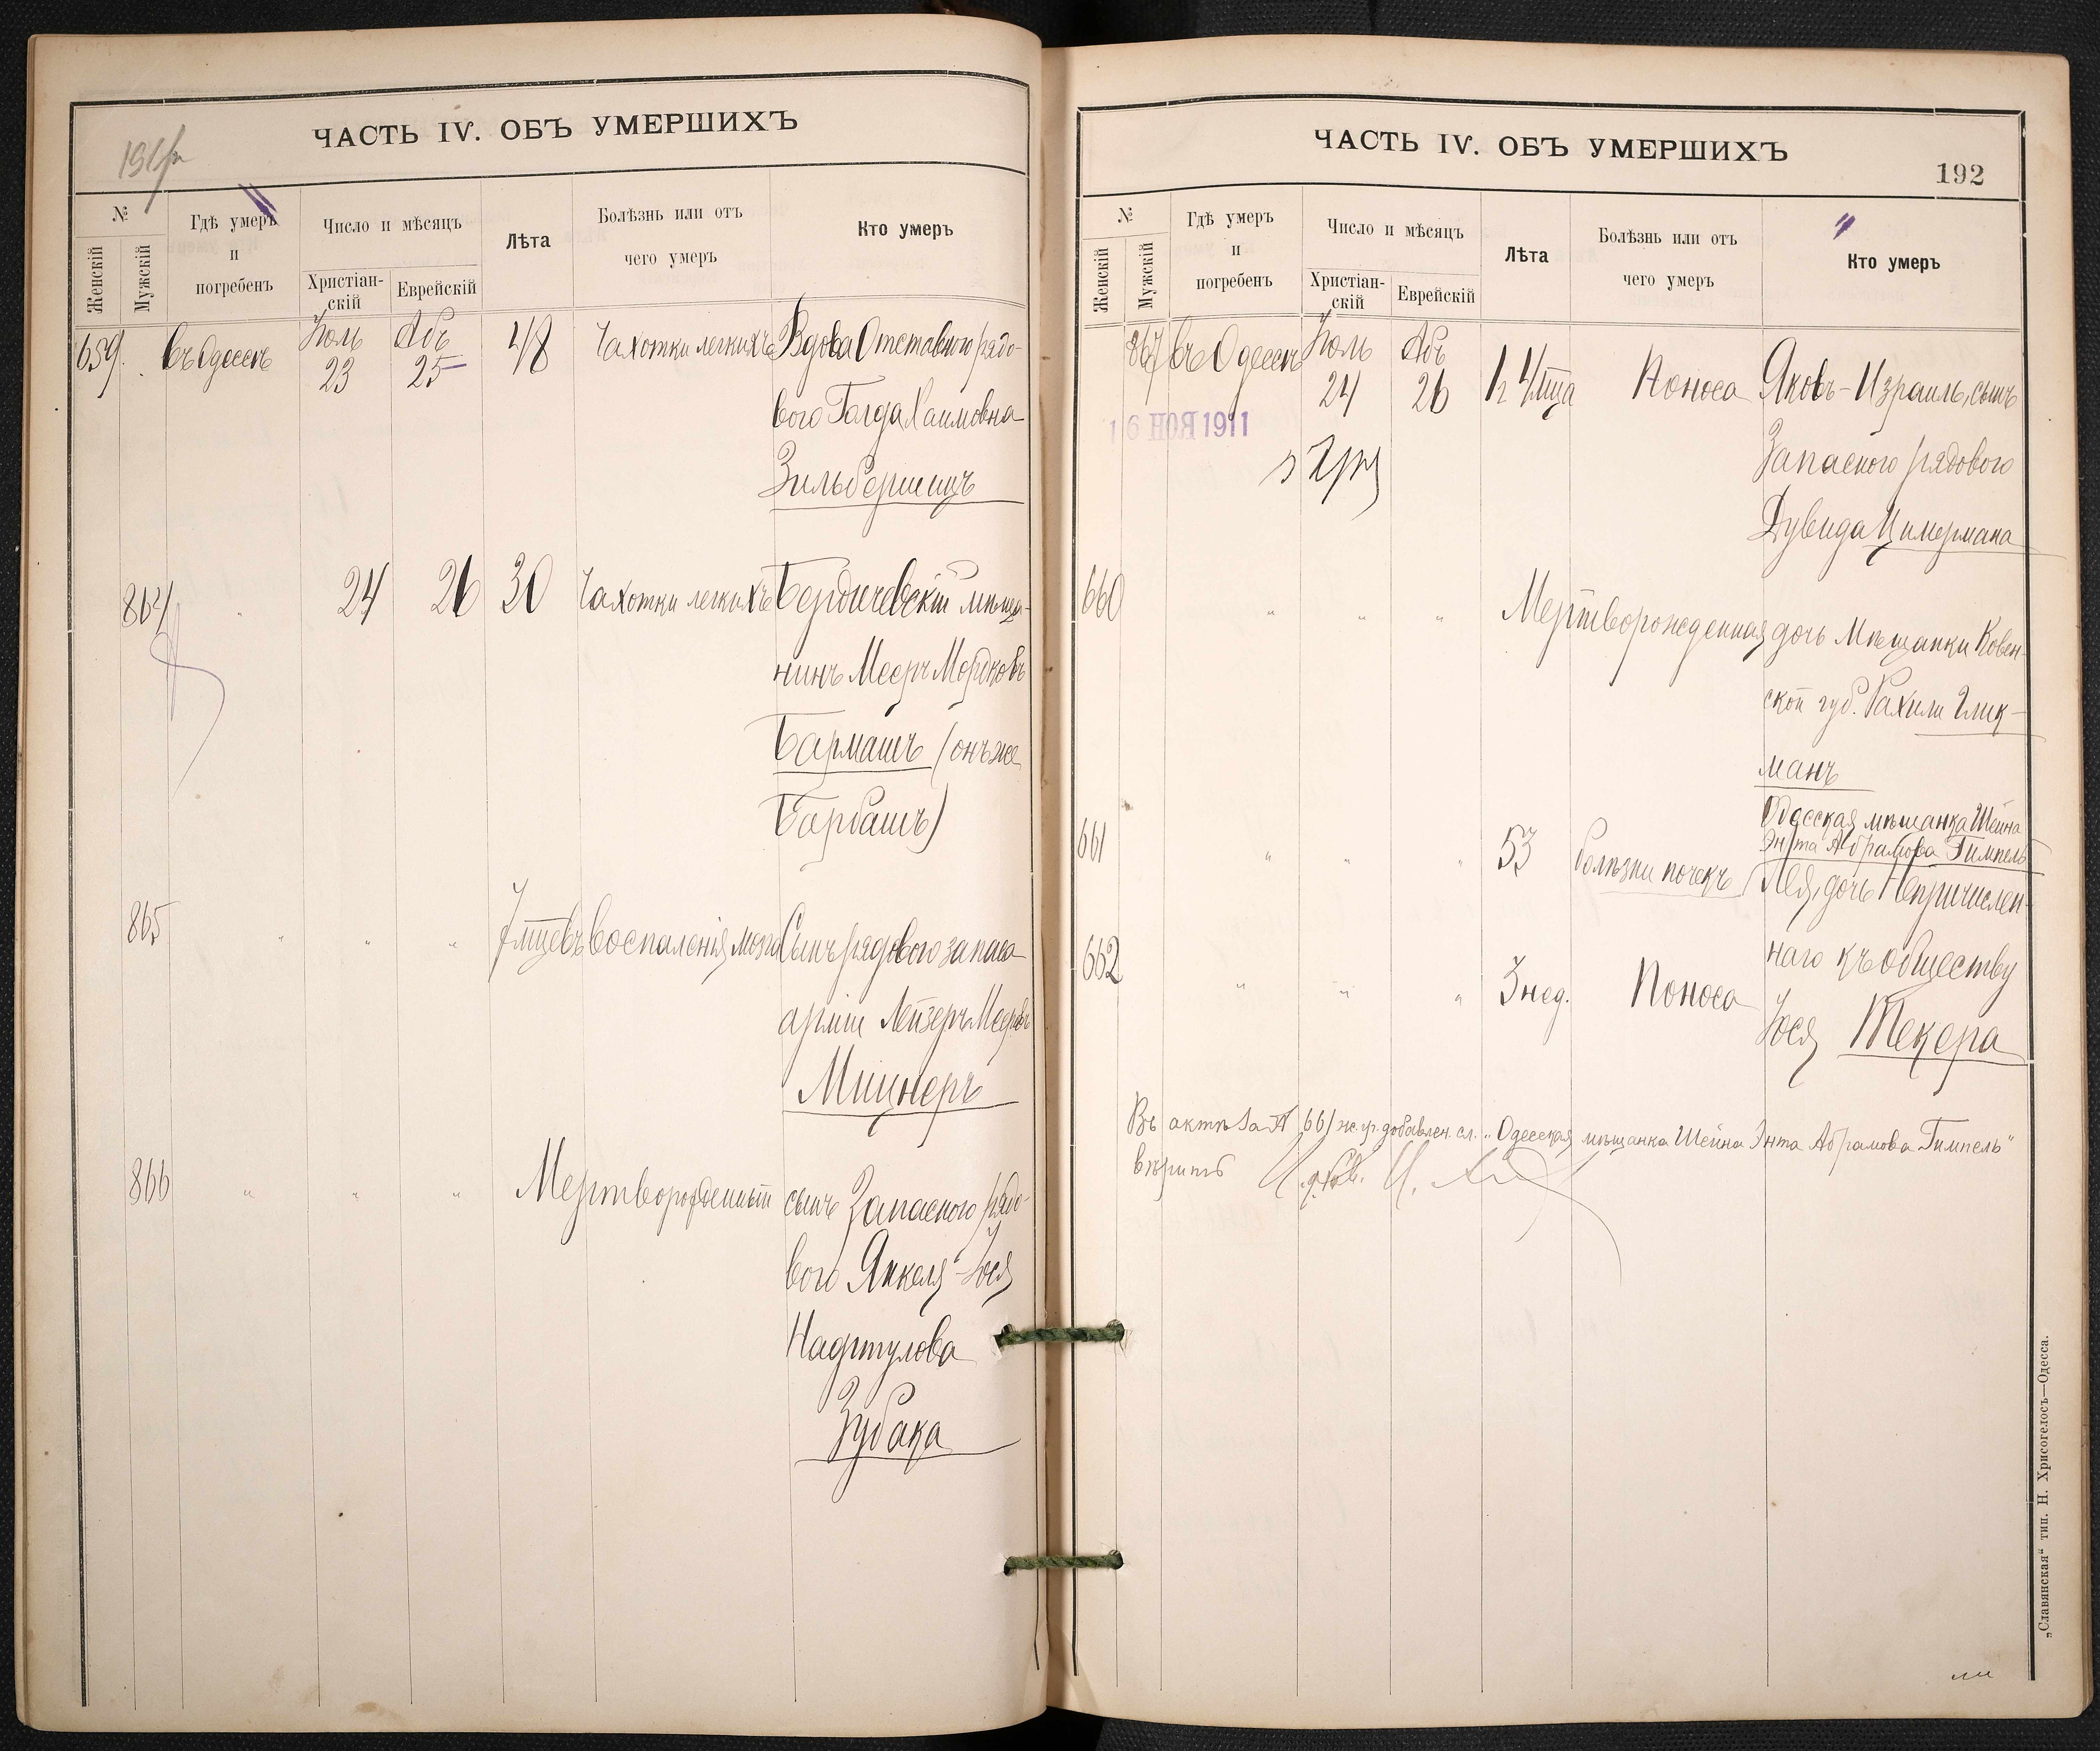 ЧАСТЬ IV. ОБЪ УМЕРШИХЪ
№
Женскій
Мужскій
Гдѣ умеръ
и
погребенъ
Число и мѣсяцъ
Христіан-
скій
Еврейскій
Лѣта
Болѣзнь или отъ
чего умеръ
Кто умеръ
659. въ Одессѣ Іюль 23 Абъ 25 48 Чахотки легкихъ Вдова Отставного рядо-
вого Голда Хаимовна
Зильбершицъ
864 " 24 26 30 Чахотки легкихъ Бердичевскій мѣща-
нинъ Мееръ Мордковъ
Бармашъ (онъ же
Барбашъ)
865 " " " 7 мцевъ воспаленія мозга Сынъ рядового запаса
арміи Лейзеръ Мееровъ
Мицнеръ
866 " " " Мертворожденный сынъ Запасного рядо-
вого Янкеля-Іося
Надртулова
Зубака
ЧАСТЬ IV. ОБЪ УМЕРШИХЪ
192
№
Женскій
Мужскій
Гдѣ умеръ
и
погребенъ
Число и мѣсяцъ
Христіан-
скій
Еврейскій
Лѣта
Болѣзнь или отъ
чего умеръ
Кто умеръ
867 въ Одессѣ Іюль 24 Абъ 26 1½ мца Поноса Яковъ-Израиль, сынъ
16 НОЯ 1911
Запасного рядового
Дувида Цимермана
660 " " " Мертворожденная дочь Мѣщанки Ковен-
ской губ. Рахили Глик-
манъ
661 " " " 53 болѣзни почекъ Одесская мѣщанка Шейна
Энта Абрамова Гимпель
662 " " " 3 нед. Поноса Лея, дочь Непричислен-
наго къ обществу
Іося Текера
Въ актѣ за № 661 ж. р. добавлен. сл. "Одесская мѣщанка Шейна Энта Абрамова Гимпель"
вѣрить
„Славянская“ тип. Н. Хрисогелосъ—Одесса.